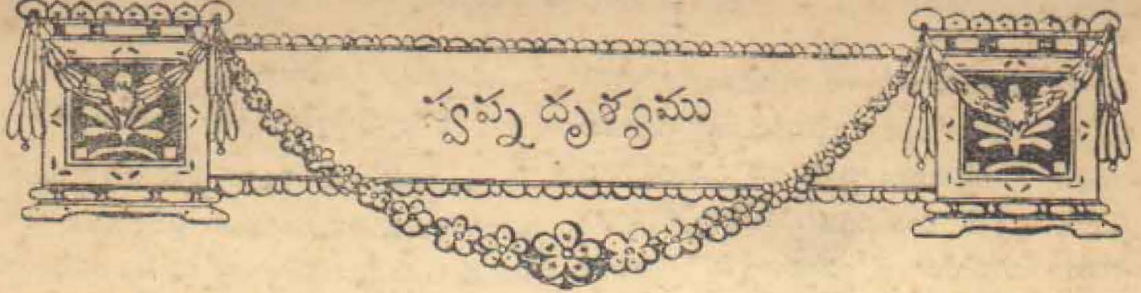 స్వప్న దృశ్యము